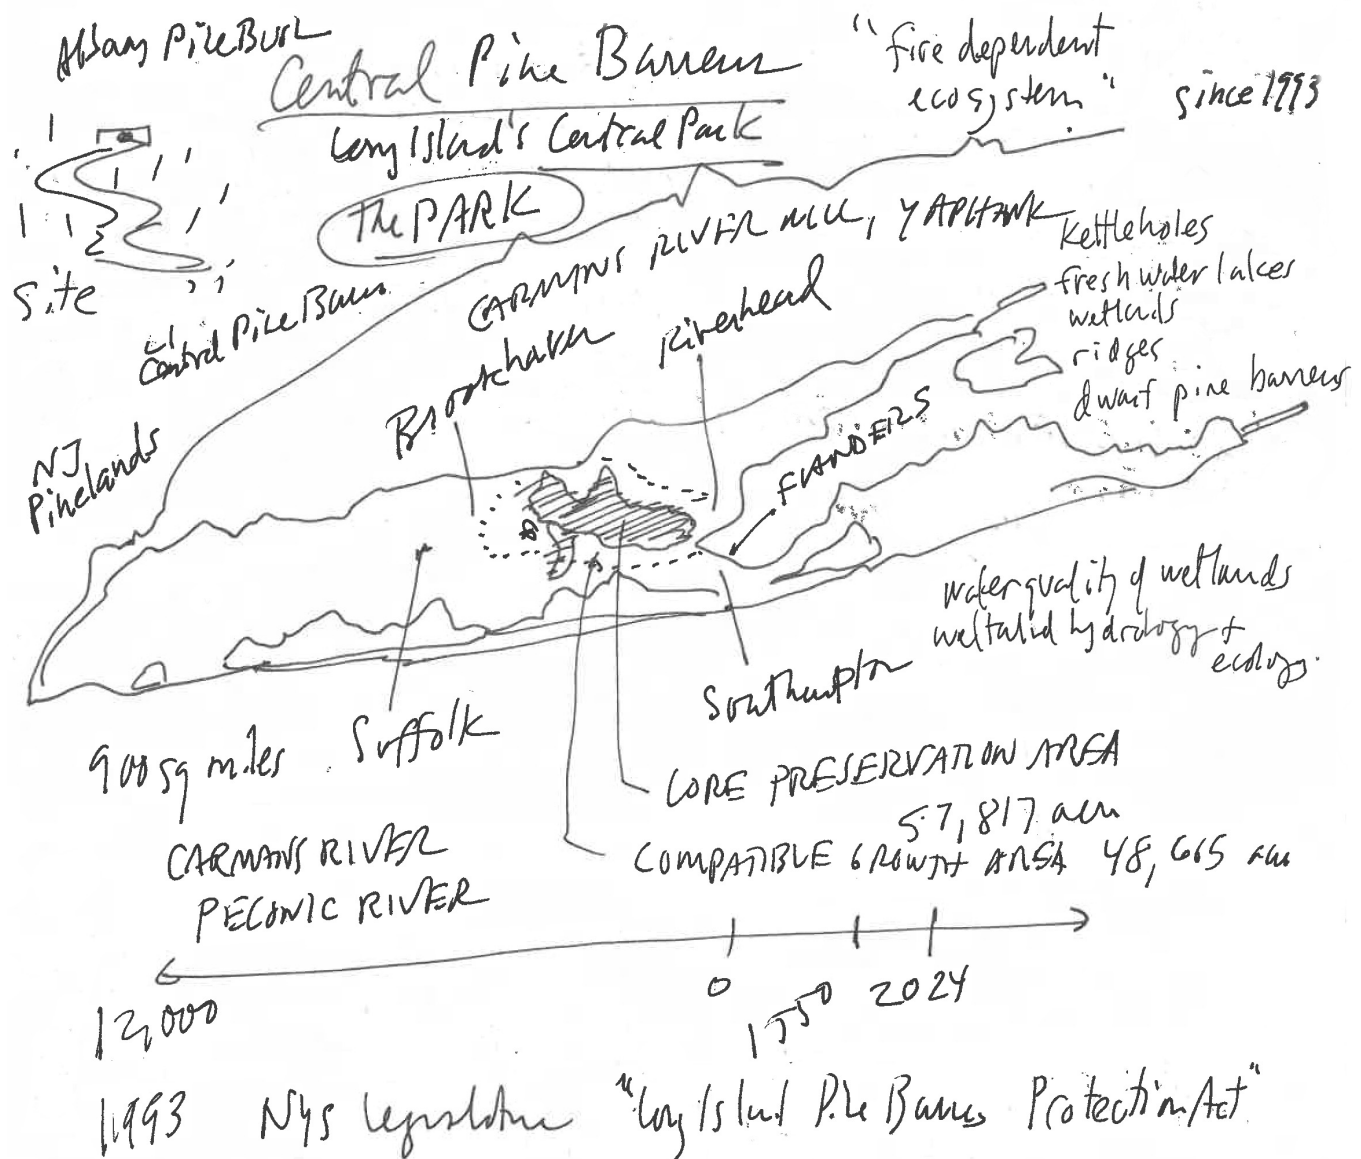 Albany Pine Bush
Central Pine Barrens
"fire dependent
ecosystem"
since 1993
Long Island's Central Park
The PARK
Site
CARMANS RIVER MILL, YAPHANK
Kettleholes
fresh water lakes
wetlands
ridges
dwarf pine barrens
LI
Central Pine Barrens
Brookhaven
Riverhead
FLANDERS
NJ
Pinelands
water quality of wetlands
wetland hydrology +
ecology.
Southampton
900 sq miles Suffolk
CORE PRESERVATION AREA
57,817 acres
COMPATIBLE GROWTH AREA 48,665 acres
CARMANS RIVER
PECONIC RIVER
12,000
0
1750
2024
1993 NYS Legislature "Long Island Pine Barrens Protection Act"